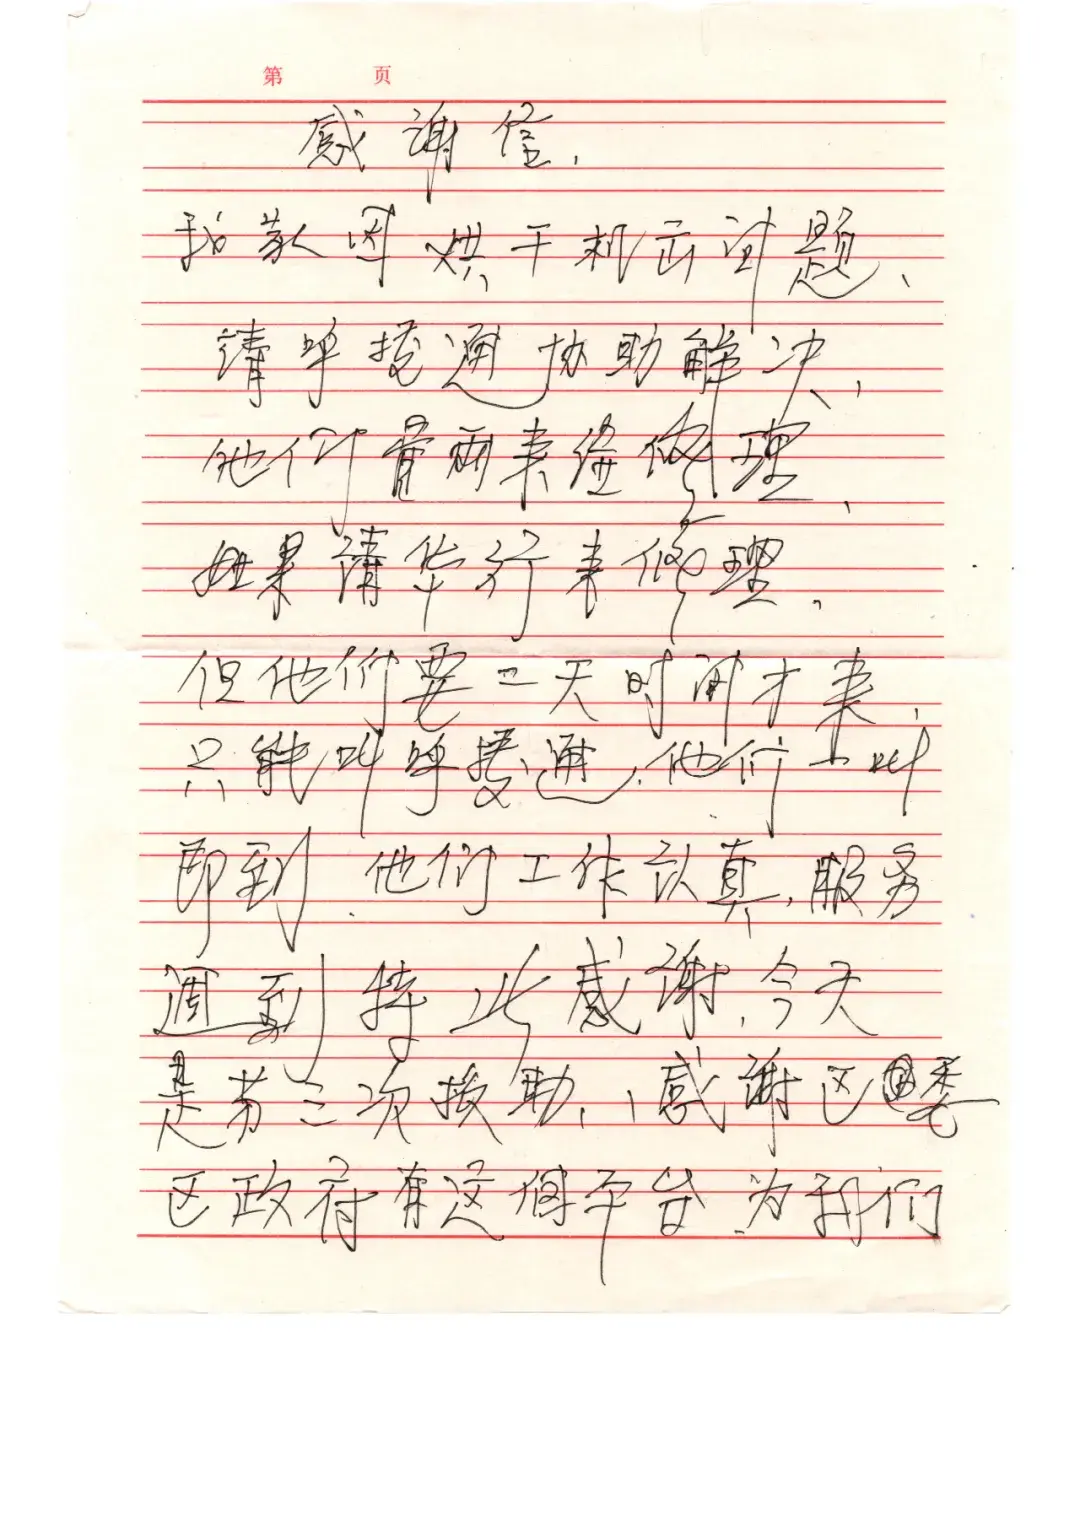 第 页
感谢信.
我家因烘干机出问题、
请呼援通协助解决、
他们冒雨来维修理、
如果请华行来修理、
但他们要二天时间才来、
只能叫呼援通、他们一叫
即到、他们工作认真、服务
週到特此感谢、今天
是第三次援助、感谢区委
区政府有这個平台为我们